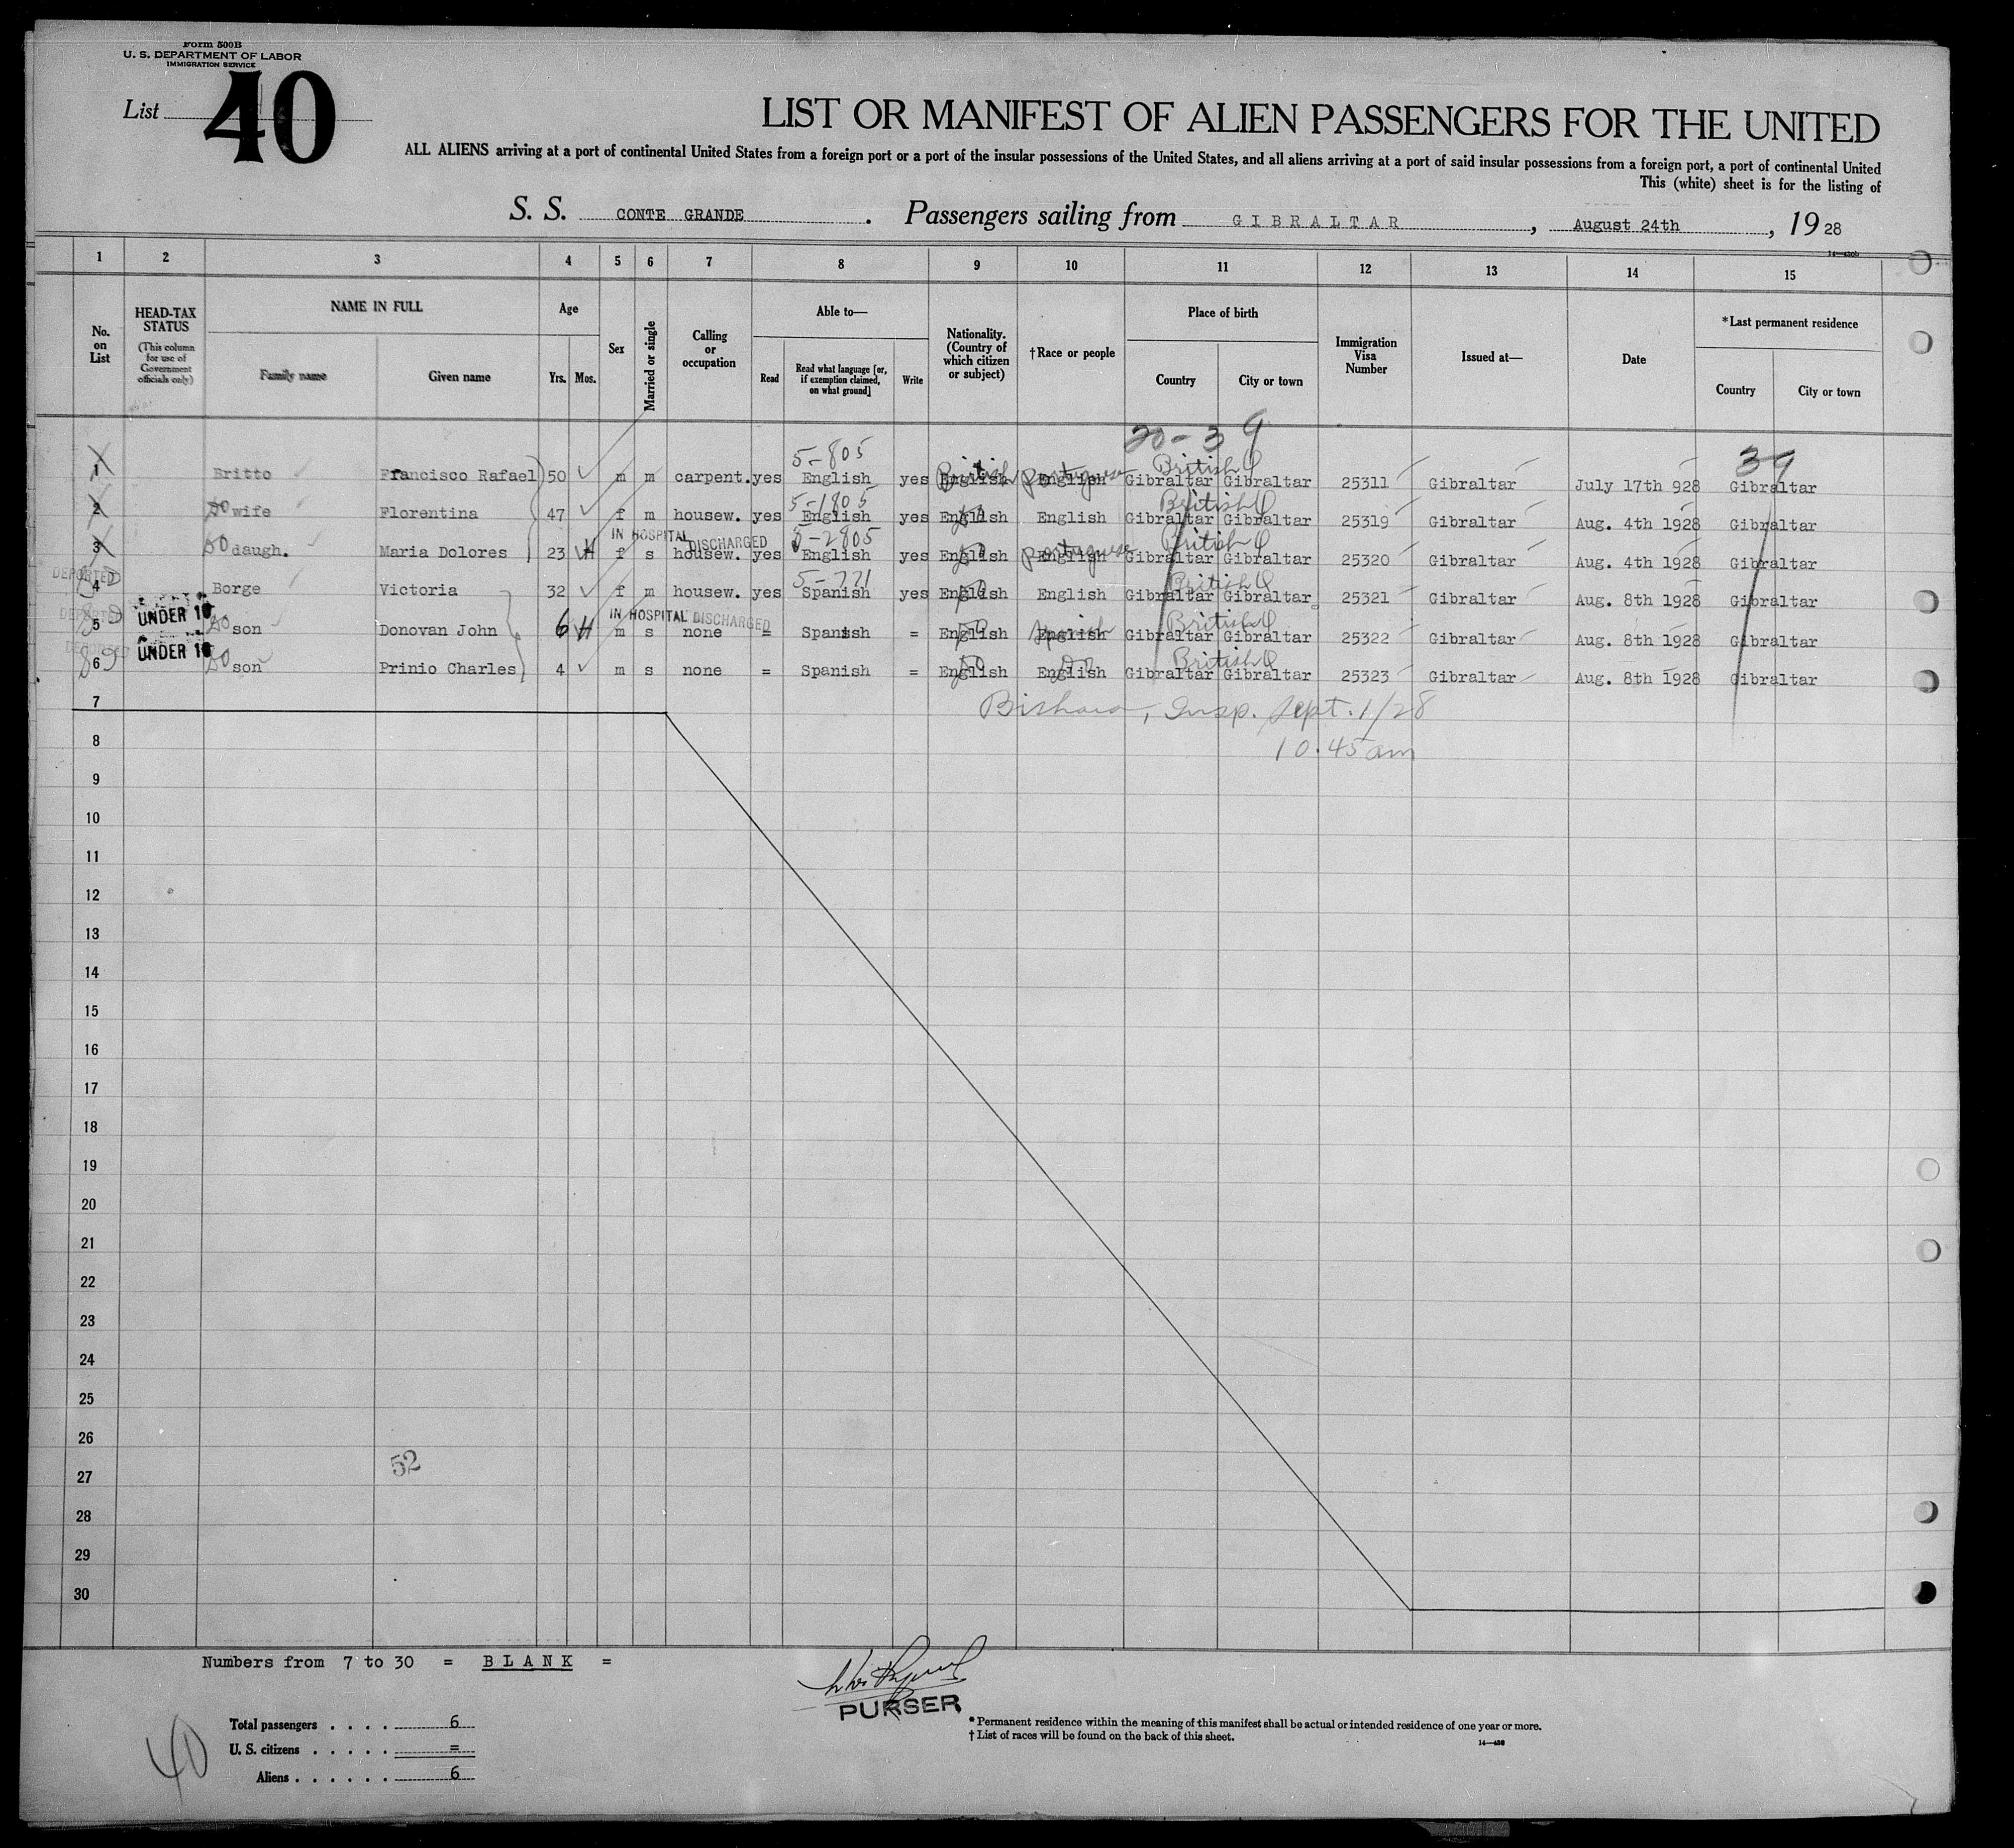 Form 500B
U. S. DEPARTMENT OF LABOR
IMMIGRATION SERVICE
List 40
LIST OR MANIFEST OF ALIEN PASSENGERS FOR THE UNITED
ALL ALIENS arriving at a port of continental United States from a foreign port or a port of the insular possessions of the United States, and all aliens arriving at a port of said insular possessions from a foreign port, a port of continental United
This (white) sheet is for the listing of
S. S. CONTE GRANDE. Passengers sailing from GIBRALTAR, August 24th, 1928
1 2 3 4 5 6 7 8 9 10 11 12 13 14 15
No. on List
HEAD-TAX STATUS (This column for use of Government officials only)
NAME IN FULL
Family name
Given name
Age
Yrs. Mos.
Sex
Married or single
Calling or occupation
Able to—
Read
Read what language [or, if exemption claimed, on what ground]
Write
Nationality. (Country of which citizen or subject)
†Race or people
Place of birth
Country
City or town
Immigration Visa Number
Issued at—
Date
*Last permanent residence
Country
City or town
20-39
5-805 British Portuguese British 39
1 Britto Francisco Rafael 50 m m carpent. yes English yes English English Gibraltar Gibraltar 25311 Gibraltar July 17th 928 Gibraltar
5-1805 British
2 Do wife Florentina 47 f m housew. yes English yes English English Gibraltar Gibraltar 25319 Gibraltar Aug. 4th 1928 Gibraltar
IN HOSPITAL DISCHARGED 5-2805 Portuguese British
3 Do daugh. Maria Dolores 23 H f s housew. yes English yes English English Gibraltar Gibraltar 25320 Gibraltar Aug. 4th 1928 Gibraltar
DEPORTED 5-771 British
4 Borge Victoria 32 f m housew. yes Spanish yes English English Gibraltar Gibraltar 25321 Gibraltar Aug. 8th 1928 Gibraltar
DEPORTED UNDER 16 IN HOSPITAL DISCHARGED Spanish British
5 Do son Donovan John 6 H m s none = Spanish = English English Gibraltar Gibraltar 25322 Gibraltar Aug. 8th 1928 Gibraltar
DEPORTED UNDER 16 Do British
6 Do son Prinio Charles 4 m s none = Spanish = English English Gibraltar Gibraltar 25323 Gibraltar Aug. 8th 1928 Gibraltar
7
Insp. Sept. 1/28
8
10.45 am
9
10
11
12
13
14
15
16
17
18
19
20
21
22
23
24
25
26
27
52
28
29
30
Numbers from 7 to 30 = BLANK =
PURSER
Total passengers . . . . 6
U. S. citizens . . . . . =
Aliens . . . . . . 6
40
* Permanent residence within the meaning of this manifest shall be actual or intended residence of one year or more.
† List of races will be found on the back of this sheet.